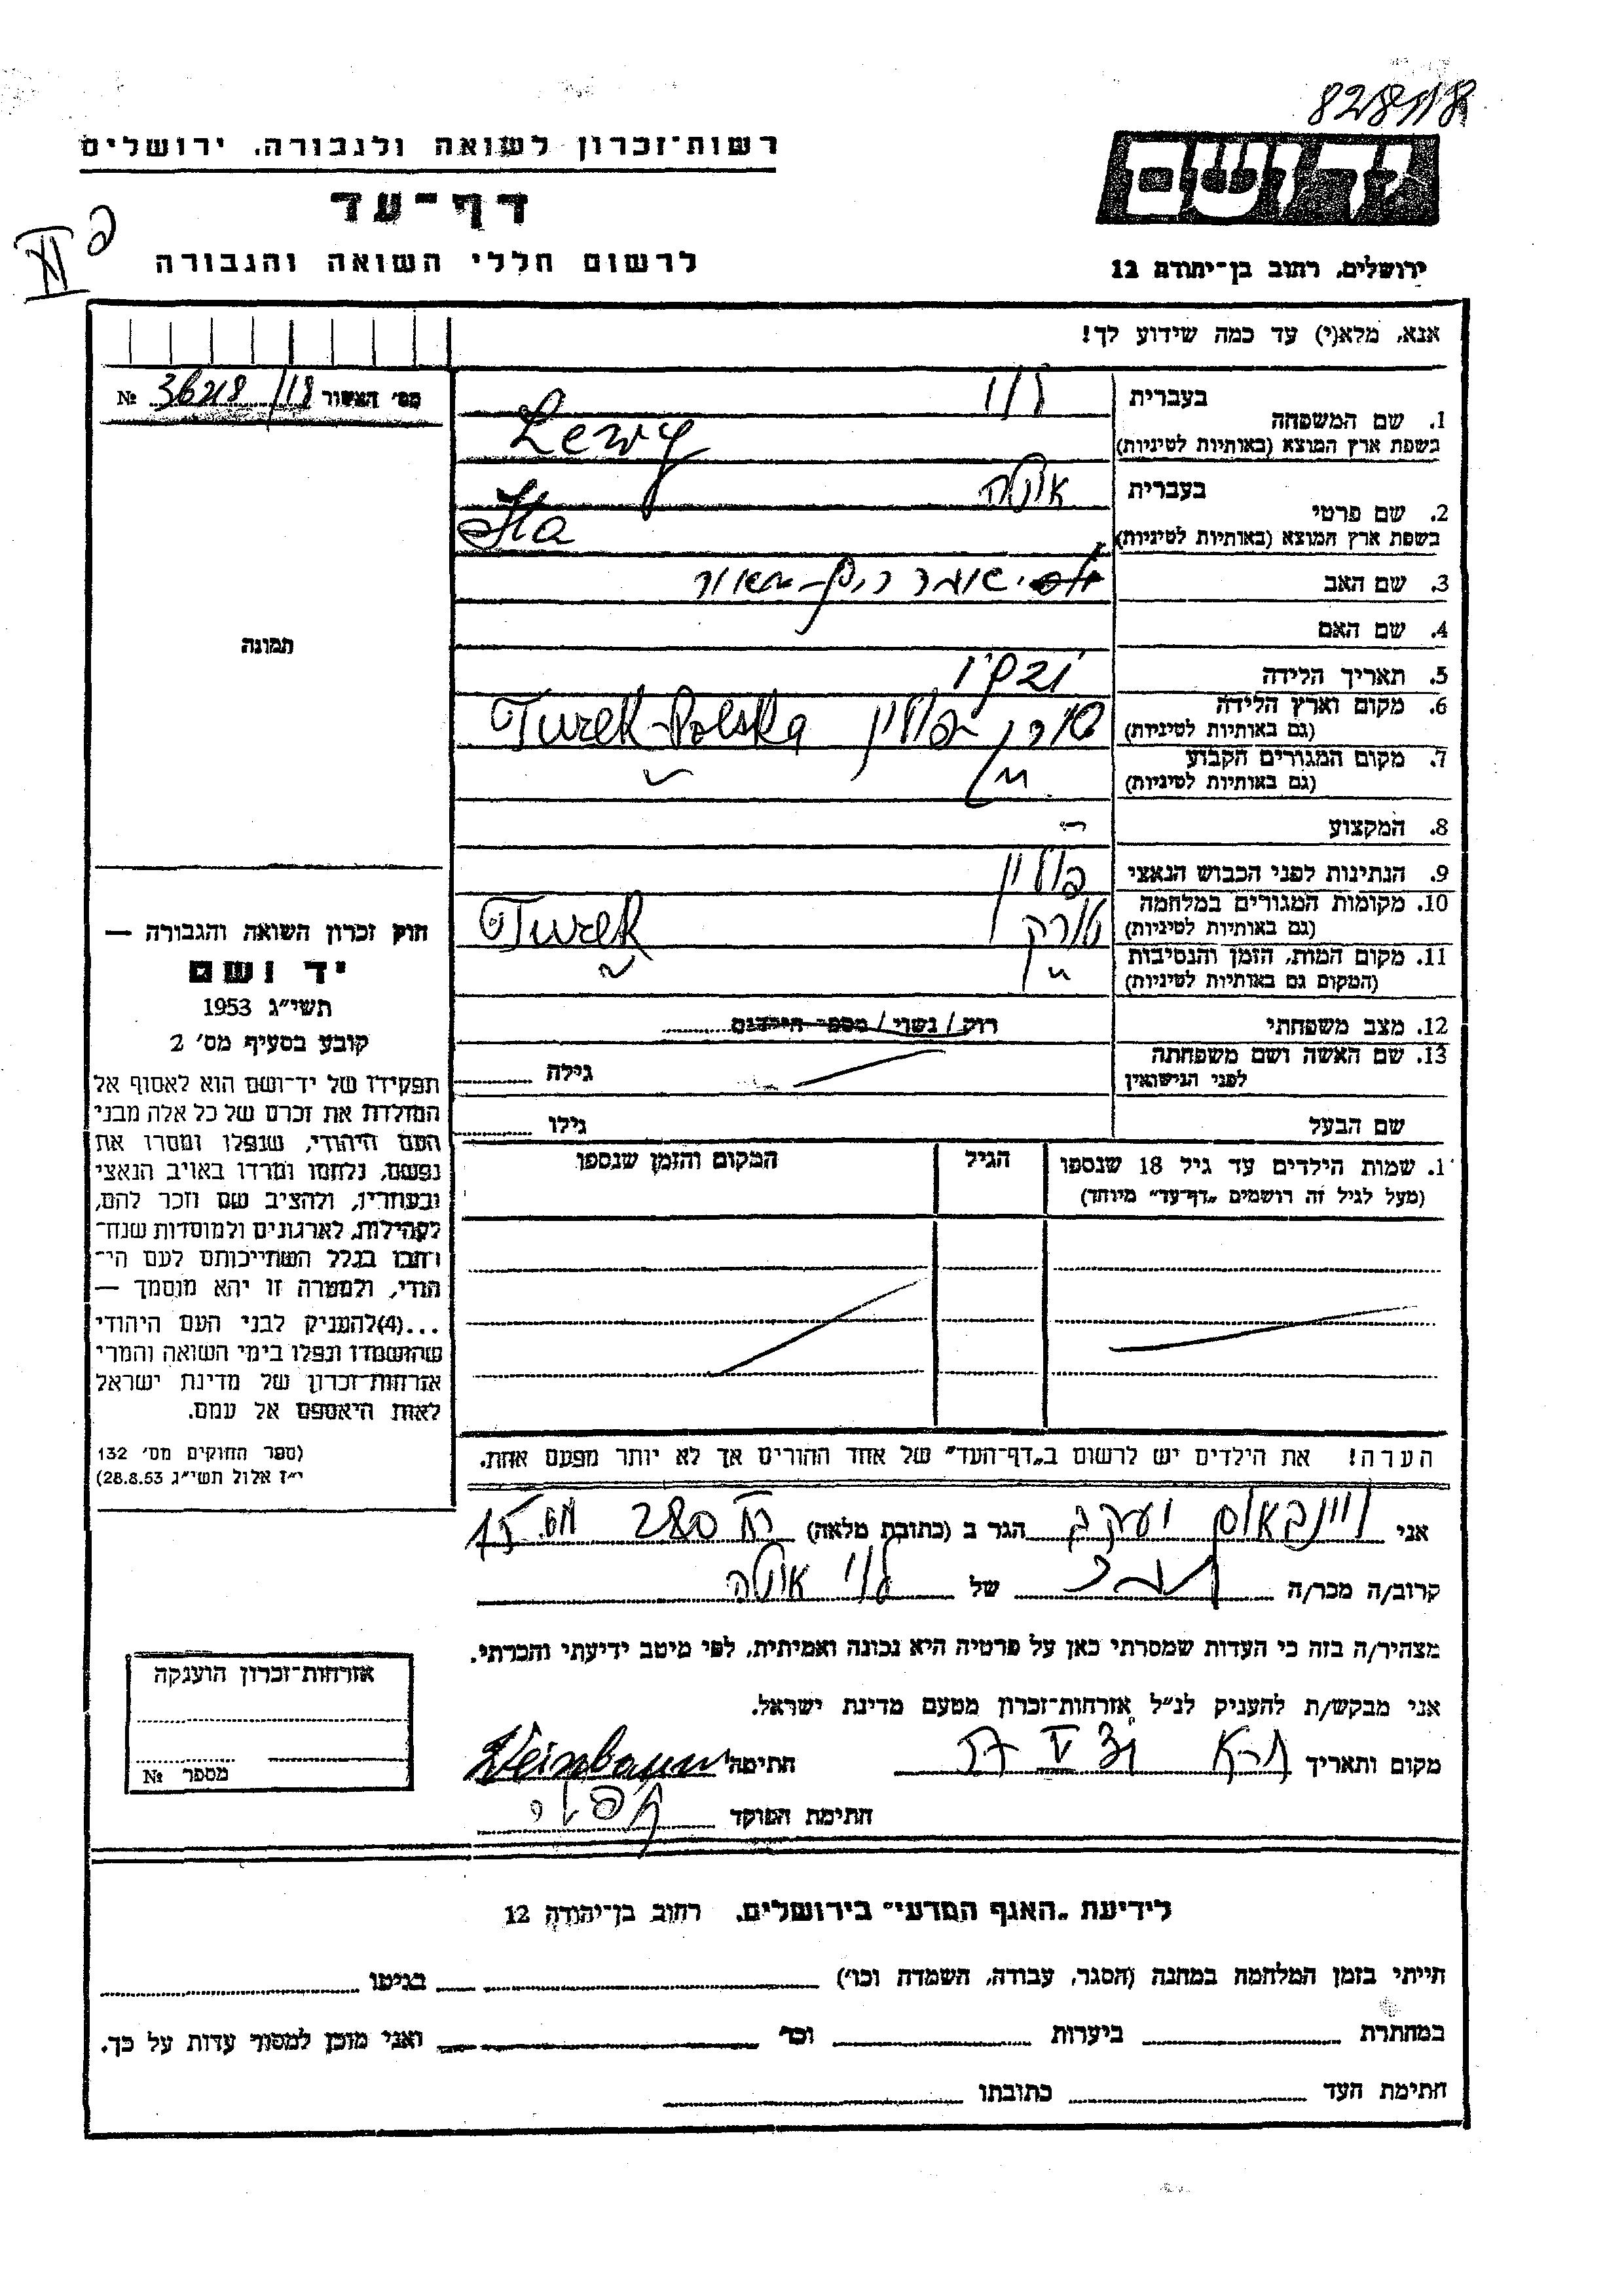 828/118
רשות־זכרון לשואה ולגבורה, ירושלים
יד ושם
דף־עד
לרשום חללי השואה והגבורה
ירושלים, רחוב בן־יהודה 12
אנא, מלא(י) עד כמה שידוע לך!
מס׳ האשור №
בעברית לוי
1. שם המשפחה
בשפת ארץ המוצא (באותיות לטיניות) Lewy
בעברית איטה
2. שם פרטי
בשפת ארץ המוצא (באותיות לטיניות) Ita
3. שם האב
4. שם האם
תמונה
5. תאריך הלידה
6. מקום וארץ הלידה טורק פולין Turek-Polska
(גם באותיות לטיניות)
7. מקום המגורים הקבוע
(גם באותיות לטיניות)
8. המקצוע
9. הנתינות לפני הכבוש הנאצי פולין
10. מקומות המגורים במלחמה טורק Turek
(גם באותיות לטיניות)
11. מקום המות, הזמן והנסיבות
(המקום גם באותיות לטיניות)
12. מצב משפחתי רווק / נשוי / מספר הילדים
13. שם האשה ושם משפחתה גילה
לפני הנישואין
שם הבעל גילו
1. שמות הילדים עד גיל 18 שנספו הגיל המקום והזמן שנספו
(מעל לגיל זה רושמים „דף־עד" מיוחד)
חוק זכרון השואה והגבורה —
יד ושם
תשי״ג 1953
קובע בסעיף מס׳ 2
תפקידו של יד־ושם הוא לאסוף אל
המולדת את זכרם של כל אלה מבני
העם היהודי, שנפלו ומסרו את
נפשם, נלחמו ומרדו באויב הנאצי
ובעוזריו, ולהציב שם וזכר להם,
לקהילות, לארגונים ולמוסדות שנח־
רבו בגלל השתייכותם לעם הי־
הודי, ולמטרה זו יהא מוסמך —
...(4)להעניק לבני העם היהודי
שהושמדו ונפלו בימי השואה והמרי
אזרחות־זכרון של מדינת ישראל
לאות היאספם אל עמם.
(ספר החוקים מס׳ 132
י״ז אלול תשי״ג 28.8.53)
הערה! את הילדים יש לרשום ב„דף־העד" של אחד ההורים אך לא יותר מפעם אחת.
אני ויינבאום יעקב הגר ב (כתובת מלאה)
קרוב/ה מכר/ה של לוי איטה
מצהיר/ה בזה כי העדות שמסרתי כאן על פרטיה היא נכונה ואמיתית, לפי מיטב ידיעתי והכרתי.
אני מבקש/ת להעניק לנ״ל אזרחות־זכרון מטעם מדינת ישראל.
מקום ותאריך חתימה Weinbaum
חתימת הפוקד
אזרחות־זכרון הוענקה
מספר №
לידיעת „האגף המדעי" בירושלים, רחוב בן־יהודה 12
הייתי בזמן המלחמה במחנה (הסגר, עבודה, השמדה וכו׳) בגיטו
במחתרת ביערות וכו׳ ואני מוכן למסור עדות על כך.
חתימת העד כתובתו